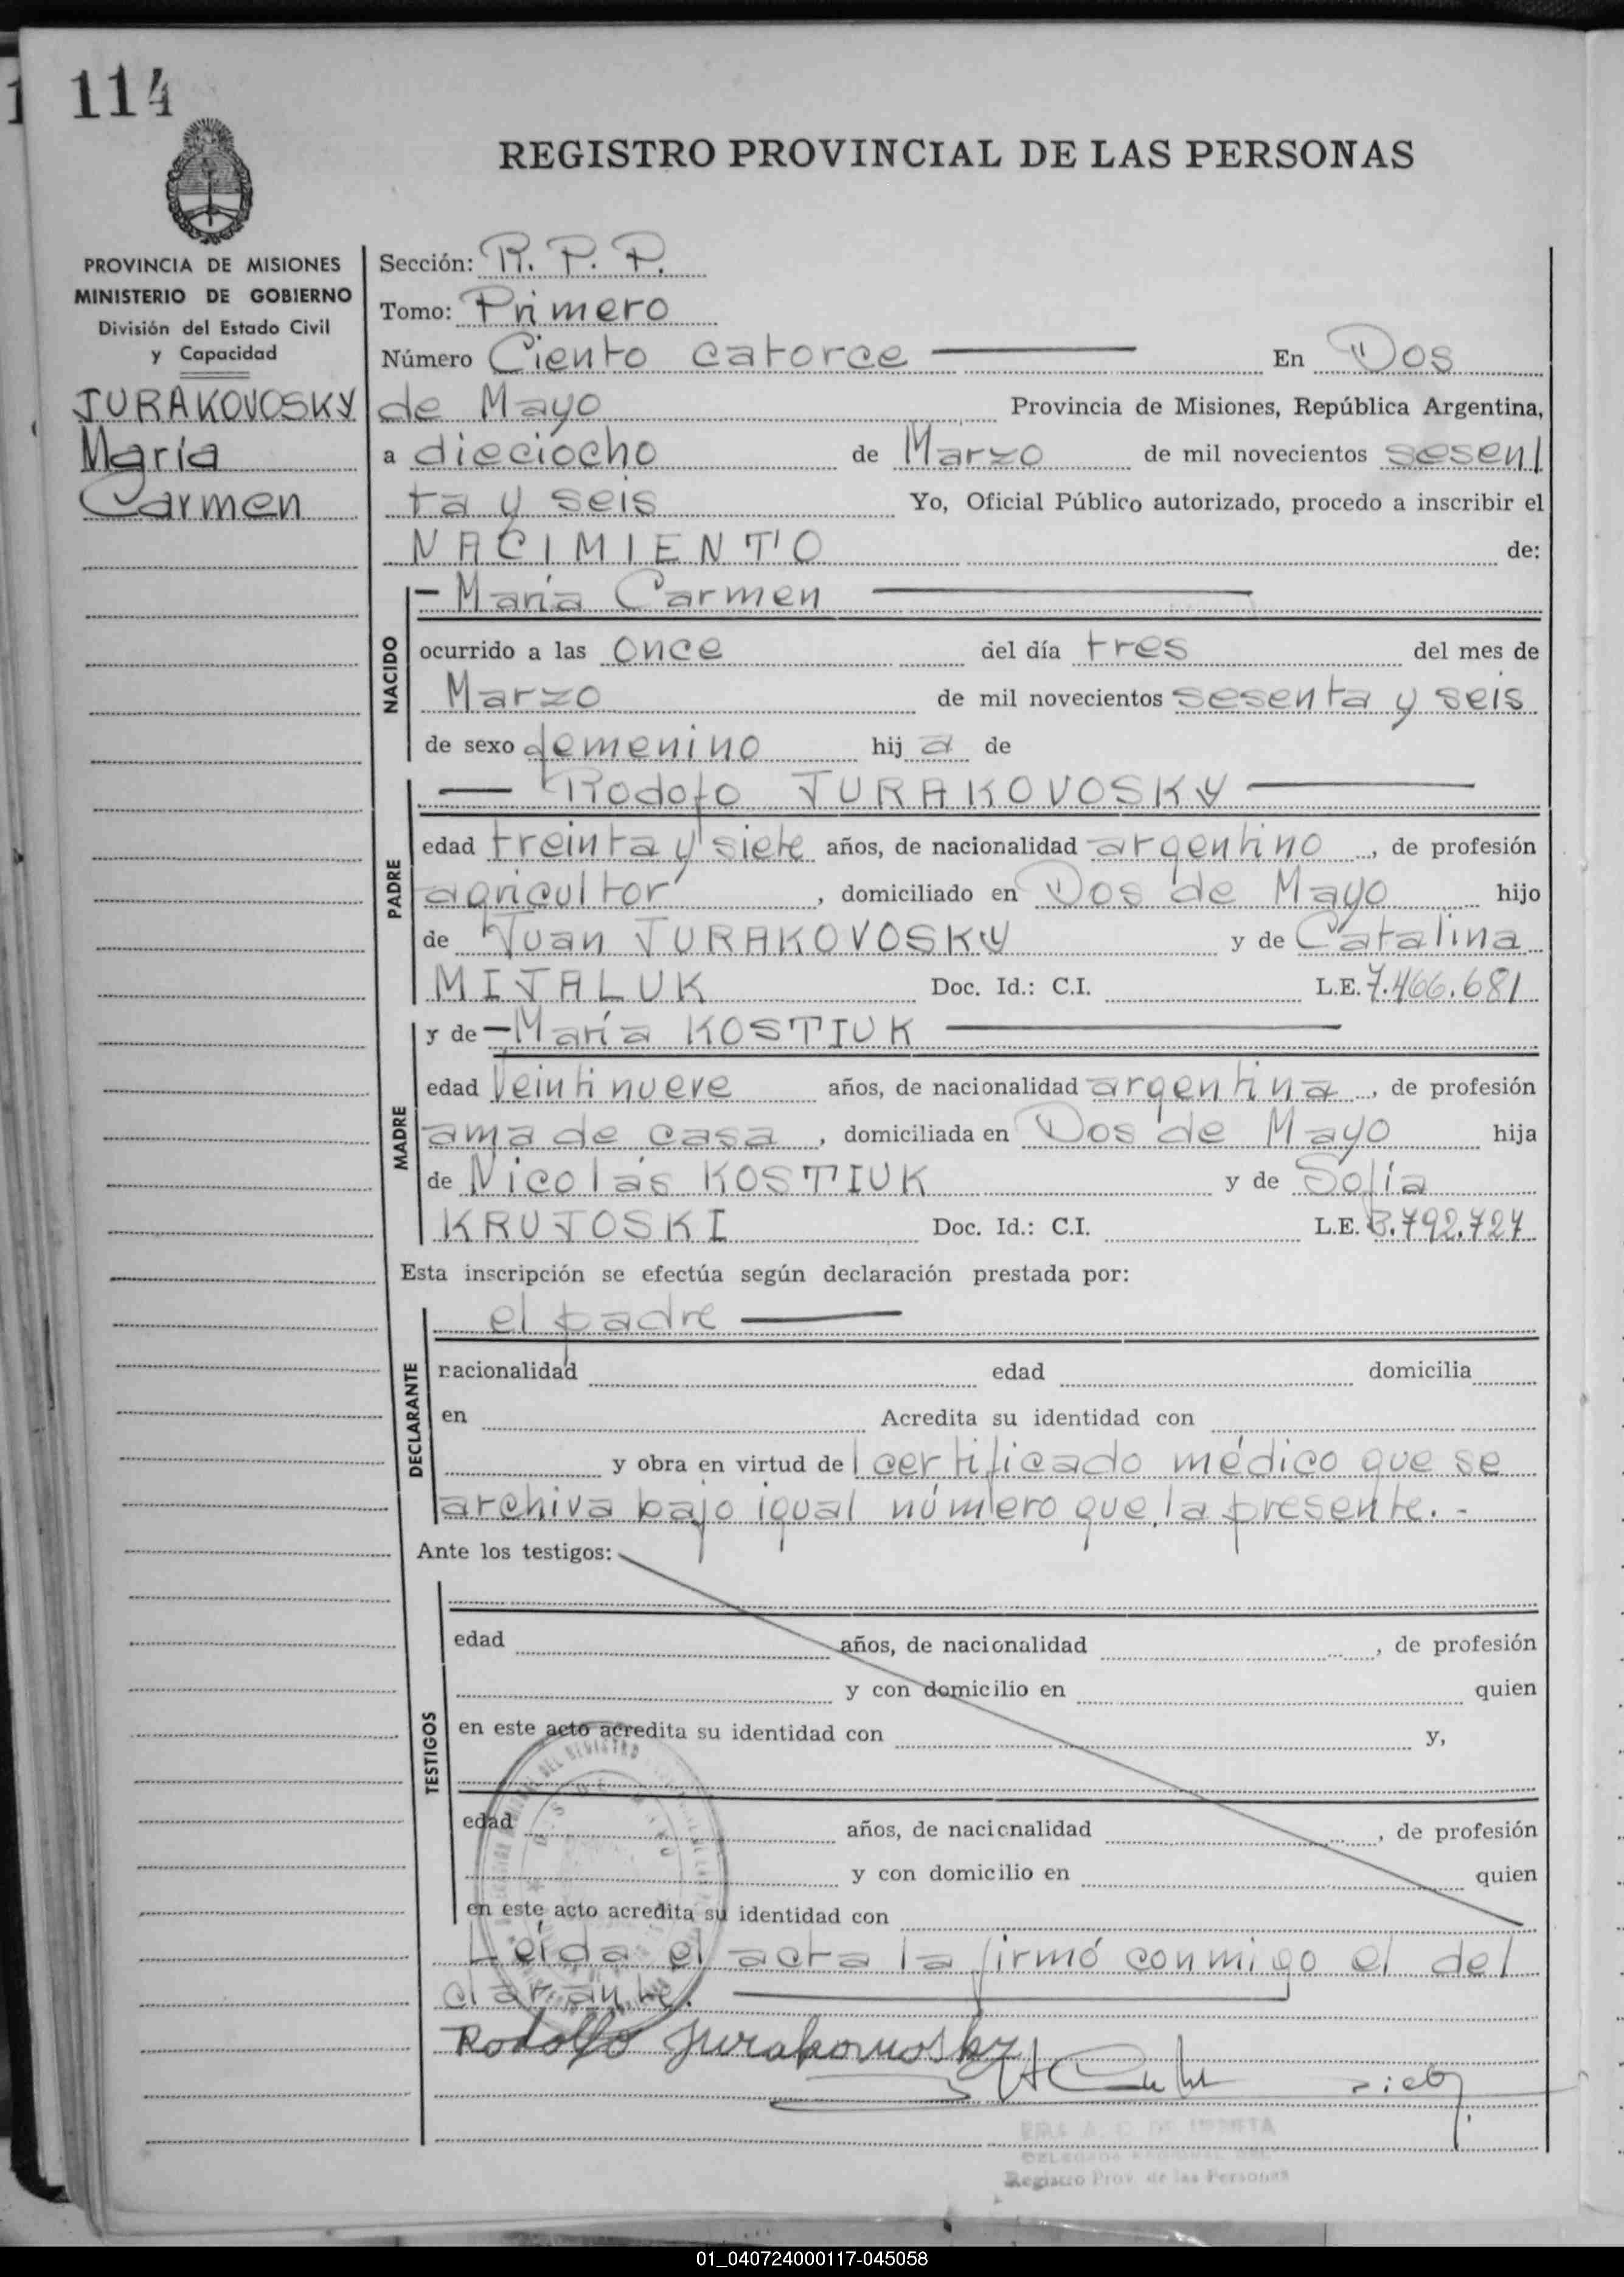 114
REGISTRO PROVINCIAL DE LAS PERSONAS
PROVINCIA DE MISIONES
MINISTERIO DE GOBIERNO
División del Estado Civil
y Capacidad
JURAKOVOSKY
María
Carmen
Sección: R. P. P.
Tomo: Primero
Número Ciento catorce En Dos
de Mayo Provincia de Misiones, República Argentina,
a dieciocho de Marzo de mil novecientos sesen/
ta y seis Yo, Oficial Público autorizado, procedo a inscribir el
NACIMIENTO de:
NACIDO
- María Carmen
ocurrido a las once del día tres del mes de
Marzo de mil novecientos sesenta y seis
de sexo femenino hij a de
PADRE
Rodofo JURAKOVOSKY
edad treinta y siete años, de nacionalidad argentino, de profesión
agricultor, domiciliado en Dos de Mayo hijo
de Juan JURAKOVOSKY y de Catalina
MIJALUK Doc. Id.: C.I. L.E. 7.466.681
MADRE
y de - María KOSTIUK
edad veintinueve años, de nacionalidad argentina, de profesión
ama de casa, domiciliada en Dos de Mayo hija
de Nicolás KOSTIUK y de Sofía
KRUJOSKI Doc. Id.: C.I. L.E. 3.792.727
Esta inscripción se efectúa según declaración prestada por:
DECLARANTE
el padre
nacionalidad edad domicilia
en Acredita su identidad con
y obra en virtud del certificado médico que se
archiva bajo igual número que la presente.-
Ante los testigos:
TESTIGOS
edad años, de nacionalidad , de profesión
y con domicilio en quien
en este acto acredita su identidad con y,
edad años, de nacionalidad , de profesión
y con domicilio en quien
en este acto acredita su identidad con
Leída el acta la firmó conmigo el del
clarante.
Rodolfo Jurakovosky
Registro Prov. de las Personas
01_040724000117-045058